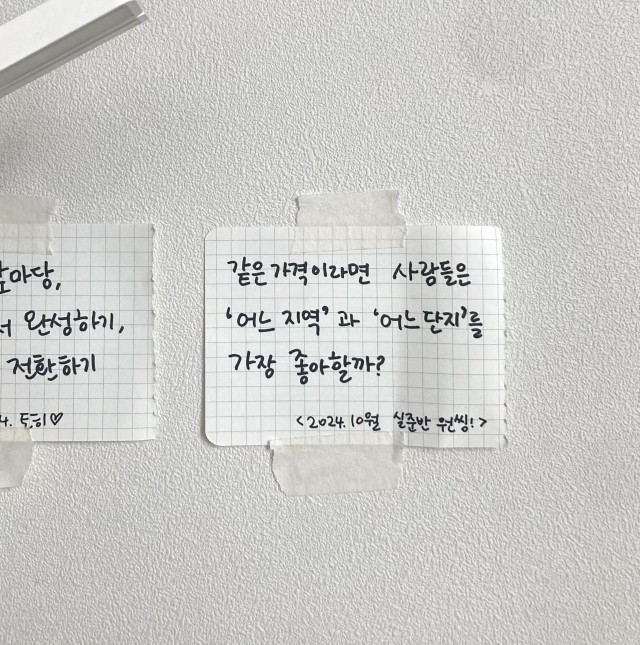 앞마당,
서 완성하기,
전환하기
4. 토히♡
같은 가격이라면 사람들은
'어느 지역'과 '어느 단지'를
가장 좋아할까?
<2024.10월 실준반 원씽!>